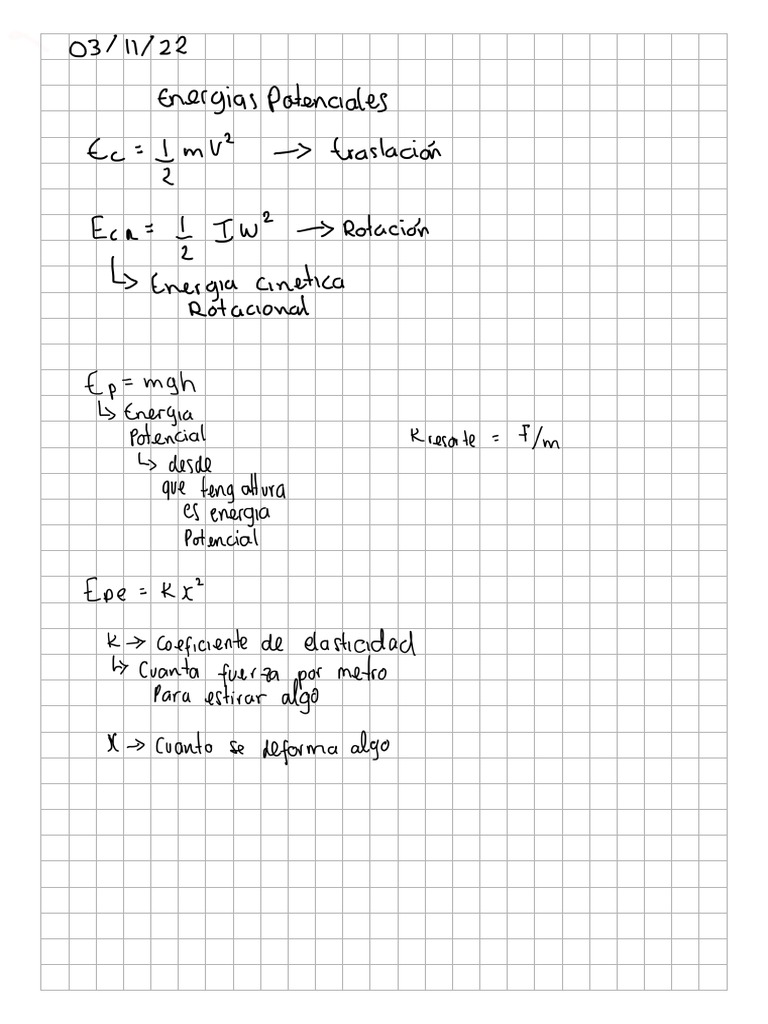 03/11/22
Energias Potenciales
Ec = 1/2 mV² → traslación
EcR = 1/2 IW² → Rotación
↳ Energia cinetica
Rotacional
Ep = mgh
↳ Energia
Potencial
↳ desde
que teng altura
es energia
Potencial
K resorte = F/m
Epe = Kx²
K → Coeficiente de elasticidad
↳ Cuanta fuerza por metro
Para estirar algo
X → Cuanto se deforma algo